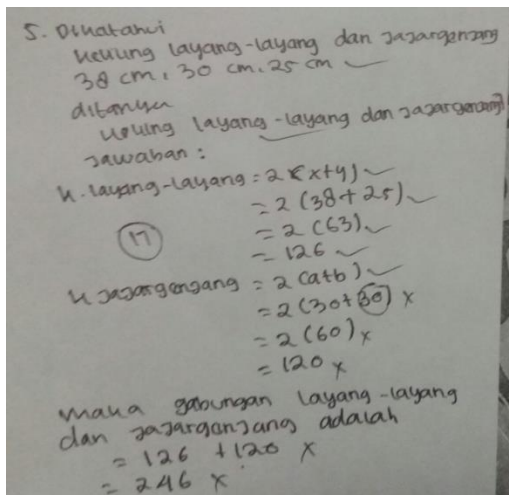 5. Diketahui
Keliling layang-layang dan jajargenjang
38 cm, 30 cm, 25 cm ✓
ditanya
Keliling layang-layang dan jajargenjang
Jawaban :
K. layang-layang = 2 (x+y) ✓
= 2 (38+25) ✓
= 2 (63) ✓
= 126 ✓
17
K jajargenjang = 2 (a+b) ✓
= 2 (30+30) x
= 2 (60) x
= 120 x
maka gabungan layang-layang
dan jajargenjang adalah
= 126 + 120 x
= 246 x